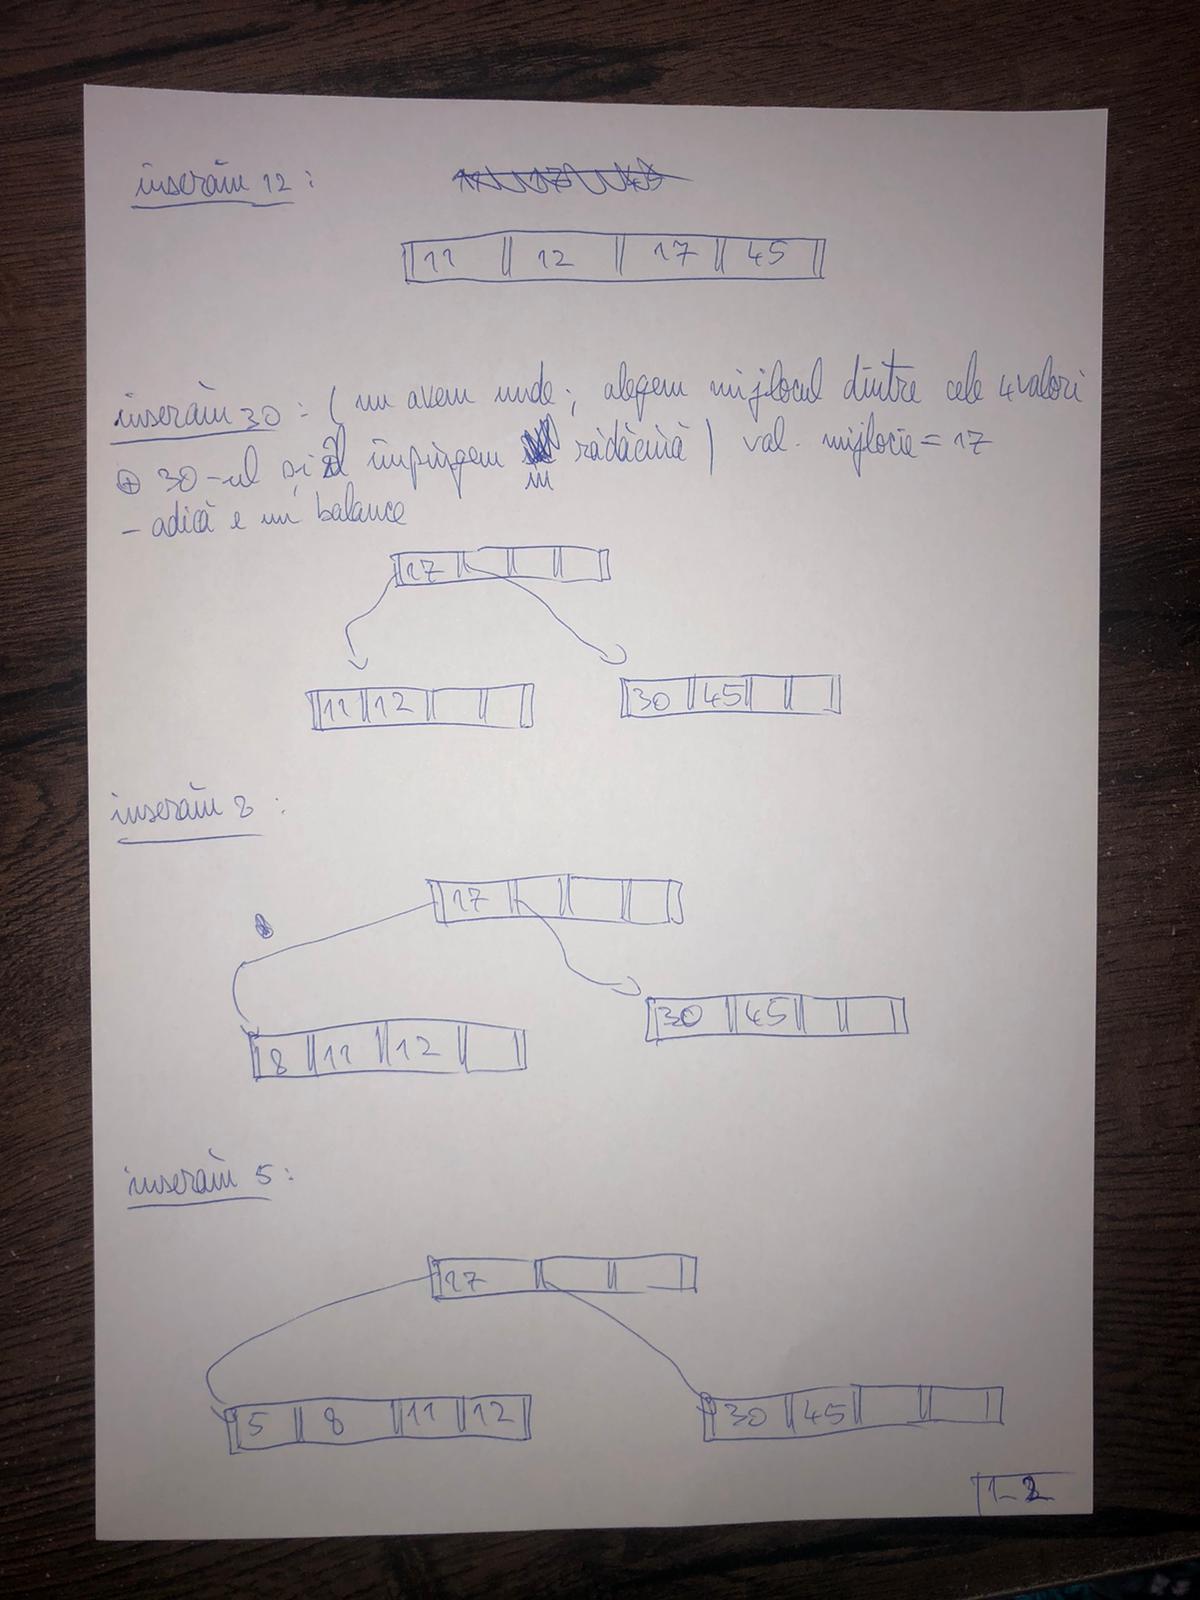 inserăm 12 :
11 12 17 45
inserăm 30 : ( nu avem unde ; alegem mijlocul dintre cele 4 valori
⊕ 30-ul și îl împingem în rădăcină ) val. mijlocie = 17
- adică e un balance
17
11 12 30 45
inserăm 8 :
17
30 45
8 11 12
inserăm 5 :
17
5 8 11 12 30 45